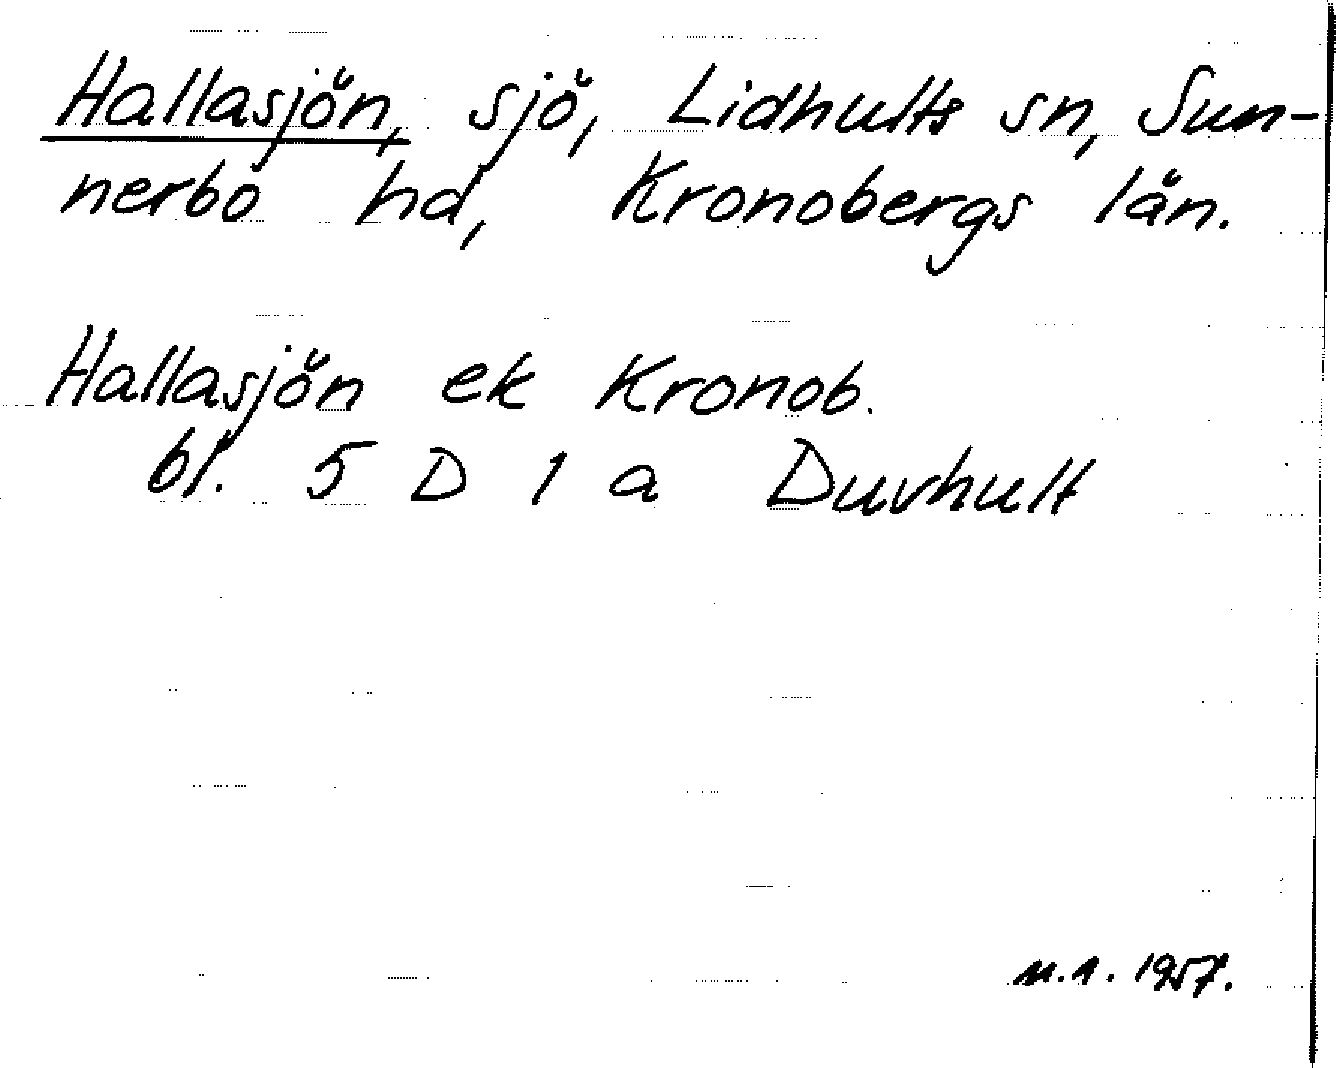 Hallasjön, sjö, Lidhults sn, Sun-
nerbo hd, Kronobergs län.
Hallasjön ek Kronob.
bl. 5 D 1 a Duvhult
1957.